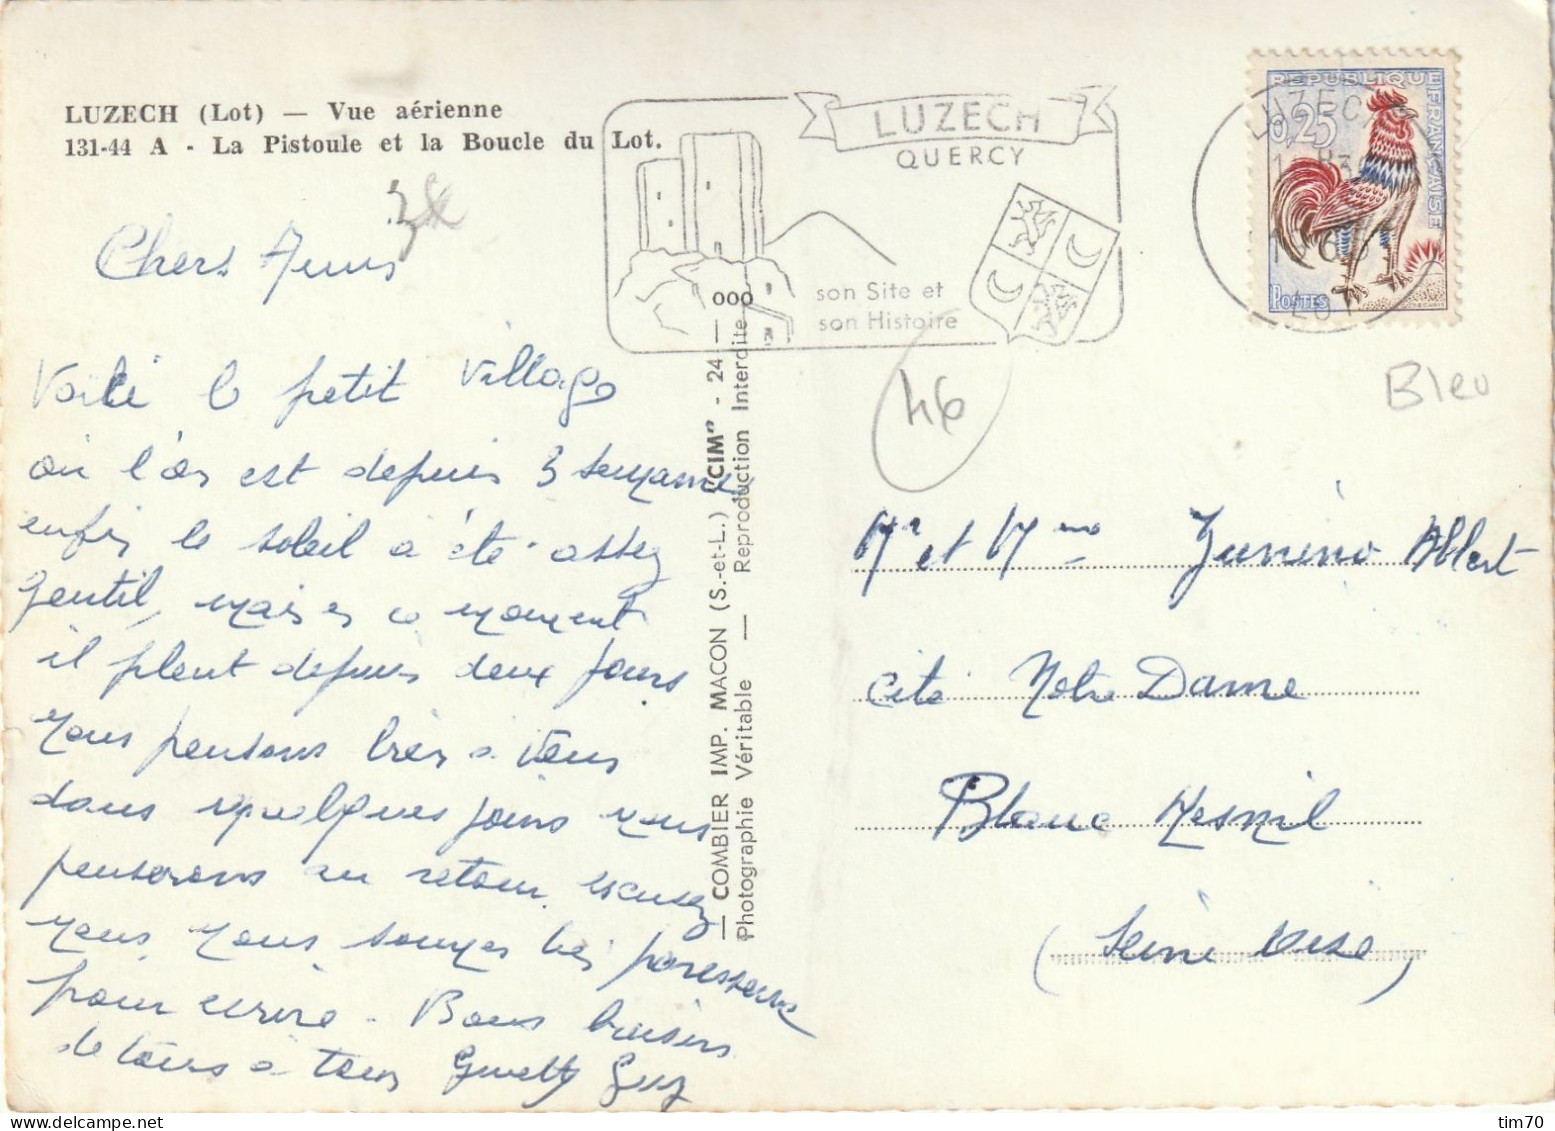 LUZECH (Lot) — Vue aérienne
131-44 A - La Pistoule et la Boucle du Lot.
LUZECH
QUERCY
son Site et
son Histoire
REPUBLIQUE FRANÇAISE
0,25
POSTES
LOT
46
Bleu
Chers Amis
Voilà le petit village
où l'on est depuis 3 semaines
enfin le soleil a été assez
gentil, mais en ce moment
il pleut depuis deux jours
nous pensons très à vous
dans quelques jours nous
penserons au retour. excusez
nous, nous sommes très paresseux
pour écrire. Bons baisers
de tous à tous Guy
— COMBIER IMP. MACON (S.-et-L.) "CIM" - 24 — ooo
Photographie Véritable — Reproduction Interdite
Mr et Mme Junino Albert
cité Notre Dame
Blanc Mesnil
(Seine Oise)
tim70